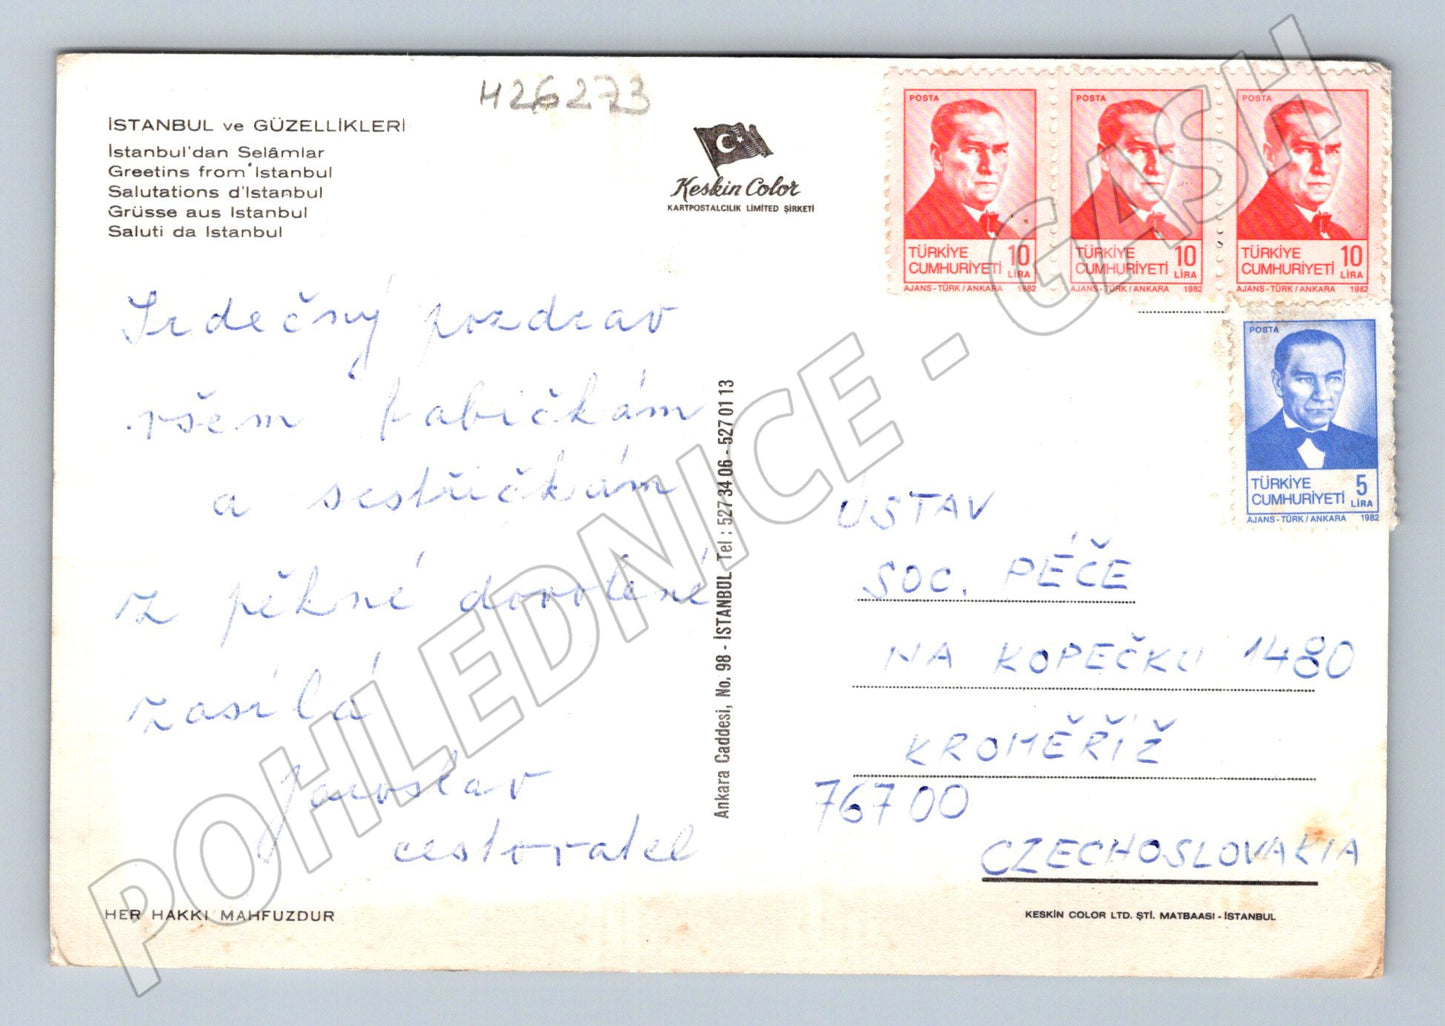 H26273
İSTANBUL ve GÜZELLİKLERİ
İstanbul'dan Selâmlar
Greetins from İstanbul
Salutations d'İstanbul
Grüsse aus İstanbul
Saluti da İstanbul
Keskin Color
KARTPOSTALCILIK LİMİTED ŞİRKETİ
POSTA
TÜRKİYE
CUMHURİYETİ
10
LİRA
AJANS-TÜRK/ANKARA 1982
POSTA
TÜRKİYE
CUMHURİYETİ
10
LİRA
AJANS-TÜRK/ANKARA 1982
POSTA
TÜRKİYE
CUMHURİYETİ
10
LİRA
AJANS-TÜRK/ANKARA 1982
POSTA
TÜRKİYE
CUMHURİYETİ
5
LİRA
AJANS-TÜRK/ANKARA 1982
Srdečný pozdrav
všem babičkám
a sestřičkám
z pěkné dovolené
zasílá
Jaroslav
cestovatel
Ankara Caddesi, No. 98 - İSTANBUL Tel : 527 34 06 - 527 01 13
ÚSTAV
SOC. PÉČE
NA KOPEČKU 1480
KROMĚŘÍŽ
767 00
CZECHOSLOVAKIA
HER HAKKI MAHFUZDUR
KESKİN COLOR LTD. ŞTİ. MATBAASI - İSTANBUL
POHLEDNICE - GASH